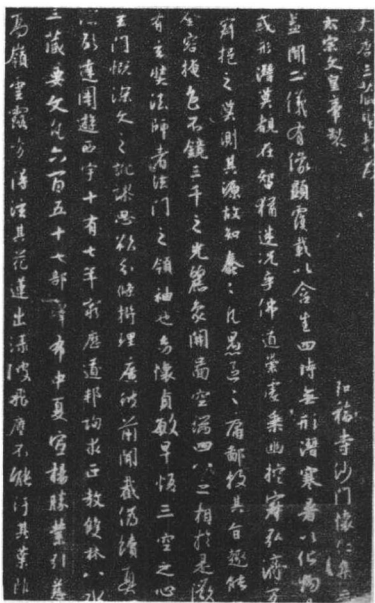 大唐三藏聖教序
弘福寺沙門懷仁集
太宗文皇帝製
蓋聞二儀有像顯覆載以含生四時無形潛寒暑以化物
或形潛莫覩在智猶迷況乎佛道崇虛乘幽控寂弘濟萬
窮拒之莫測其源故知蠢〻凡愚區〻庸鄙投其旨趣能
金容掩色不鏡三千之光麗象開圖空端四八之相於是微
有玄奘法師者法門之領袖也幼懷貞敏早悟三空之心
玄門慨深文之訛謬思欲分條析理廣彼前聞截偽續真
遠周遊西宇十有七年窮歷道邦詢求正教雙林八水
三藏要文凡六百五十七部譯布中夏宣揚勝業引慈
高嶺雲露方得泫其花蓮出淥波飛塵不能汙其葉非